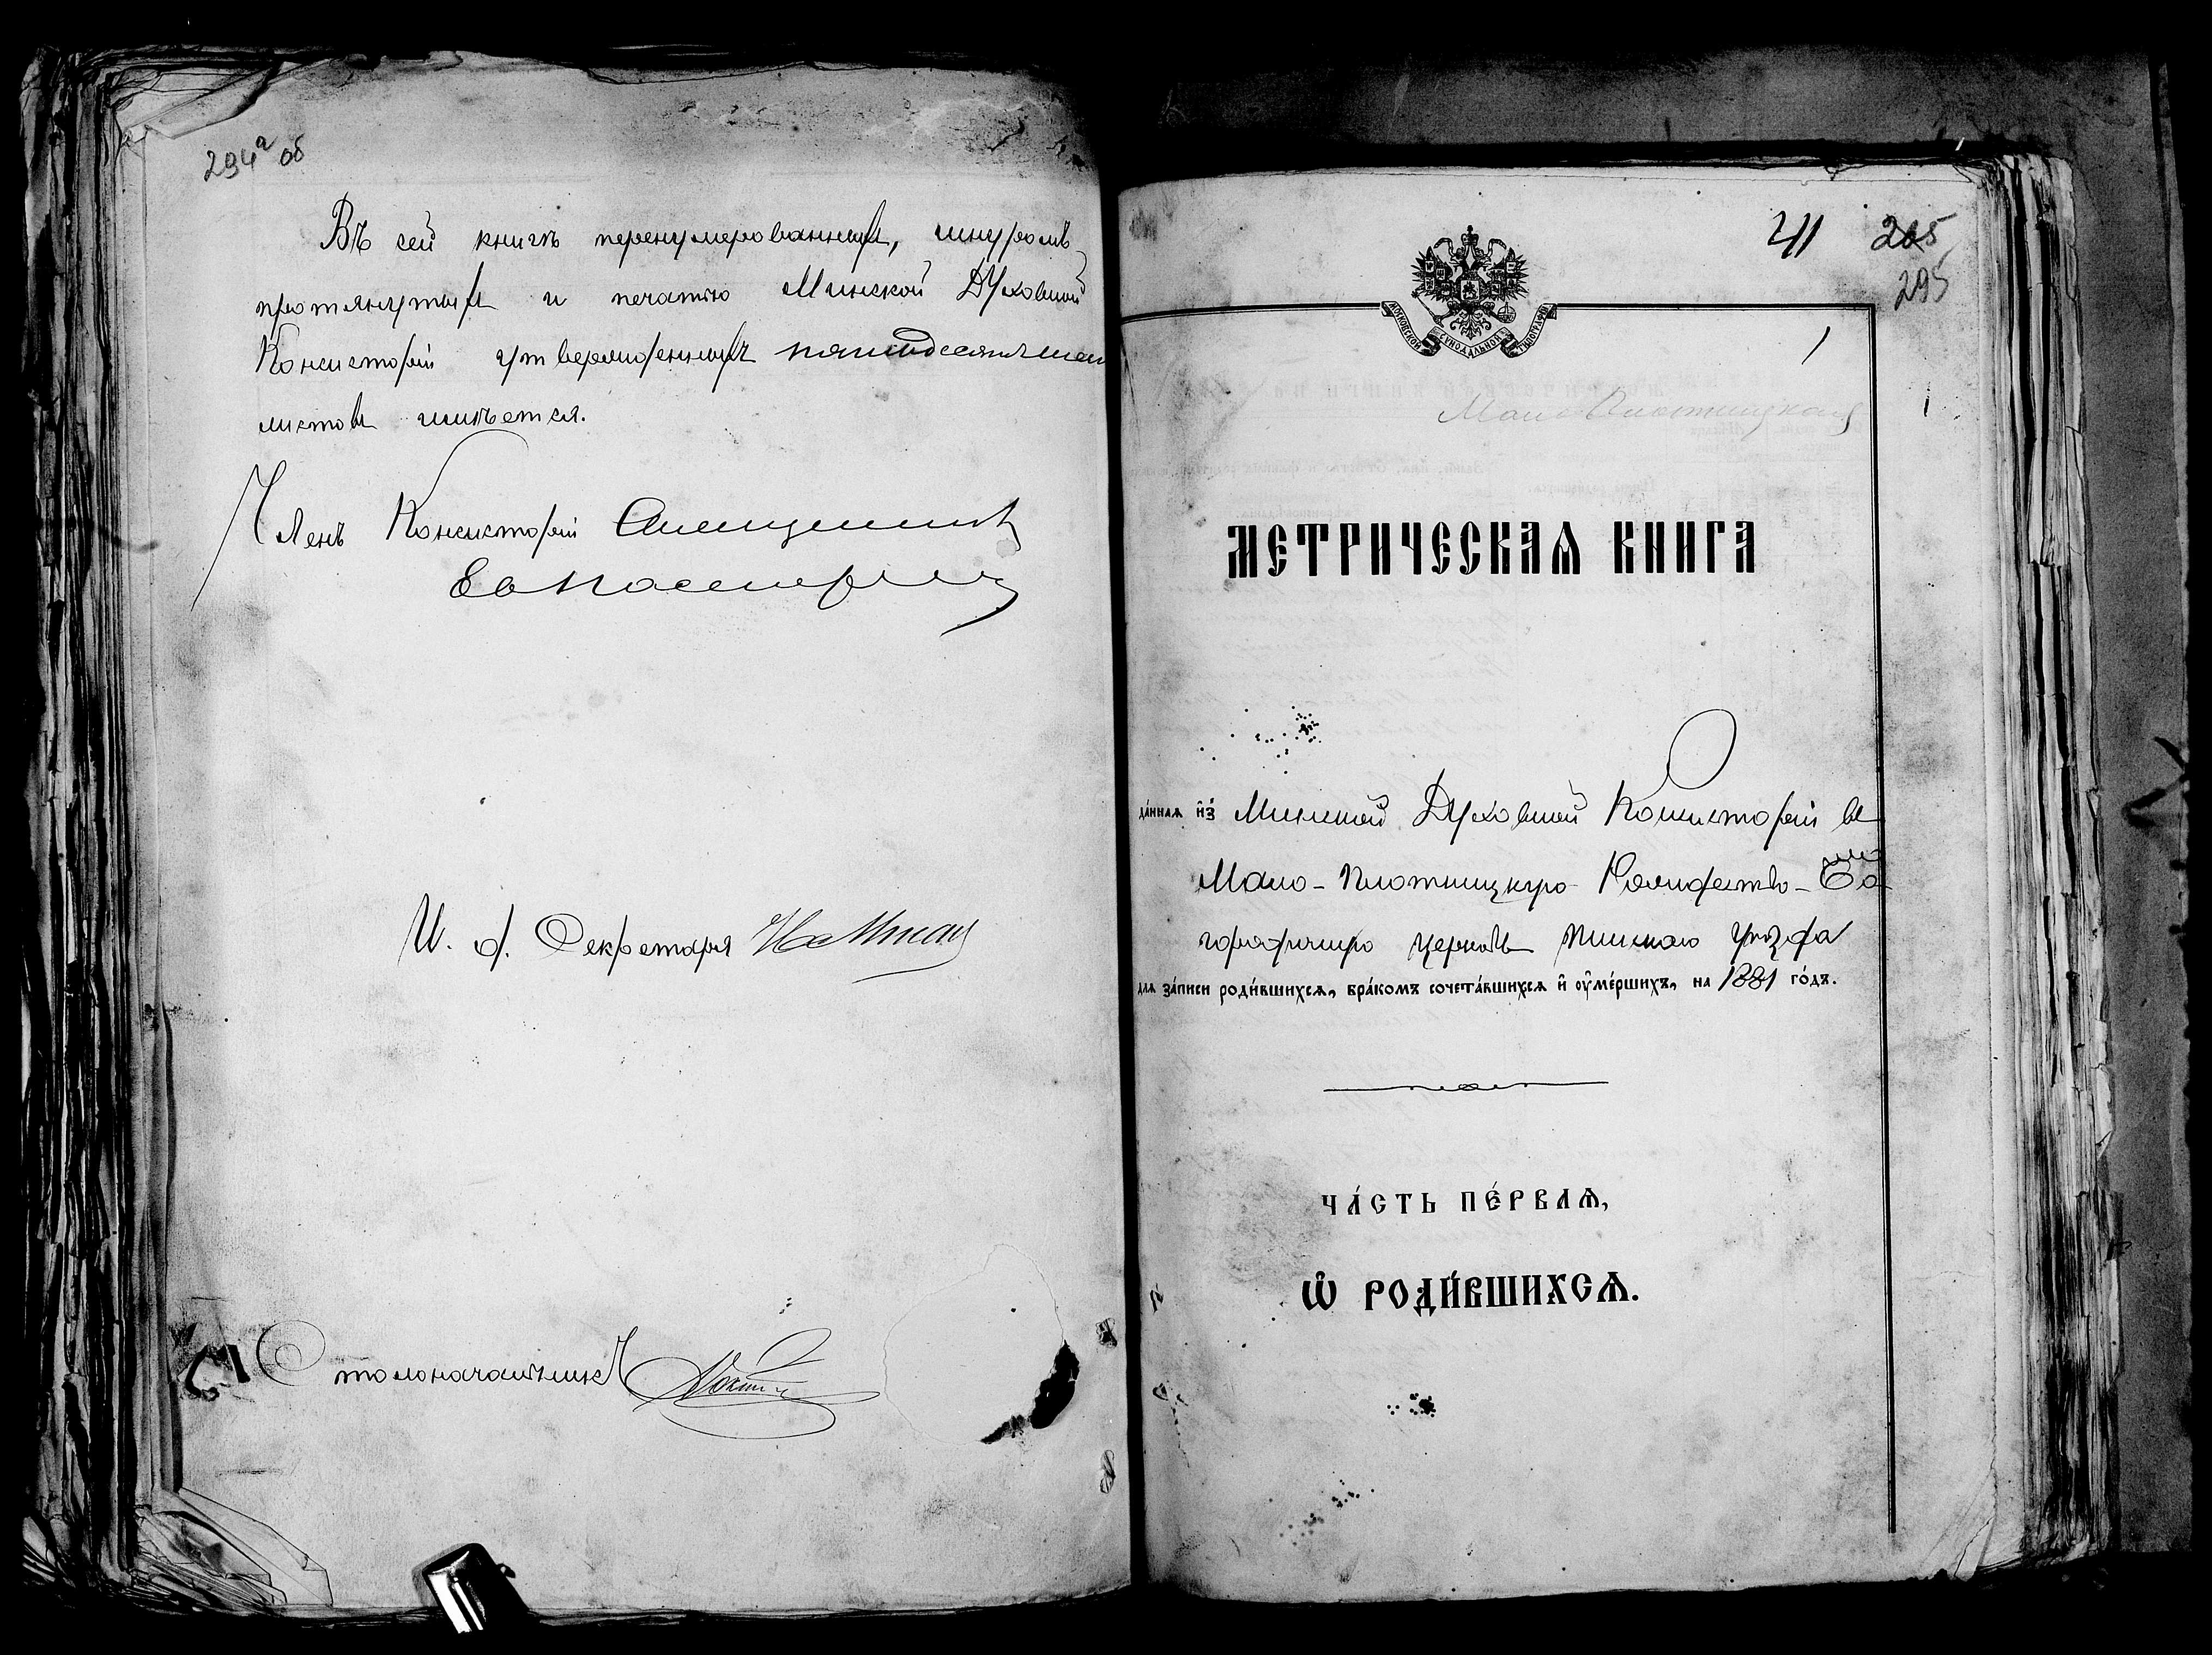 294а об
Въ сей книгѣ перенумерованныхъ, шнуромъ
протянутыхъ и печатью Минской Духовной
Консисторіи утвержденныхъ
листовъ имѣется.
Членъ Консисторіи
И. д. Секретаря
Столоначальникъ
41 205
295
МОСКОВСКОЙ СѴНОДАЛЬНОЙ ТИПОГРАФІИ
1
Мало Плотницкая
1
МЕТРИЧЕСКАѦ КНИГА
да́ннаѧ и҆з̾ Минской Духовной Консисторіи въ
Мало-Плотницкую Рождество-Бо-
городичную церковь Пинскаго уѣзда
длѧ за́писи роди́вшихсѧ, бра́комъ сочета́вшихсѧ и҆ ᲂу҆ме́ршихъ, на 1881 го́дъ.
ЧА́СТЬ ПЕ́РВАѦ,
Ѡ҆ РОДИ́ВШИХСѦ.